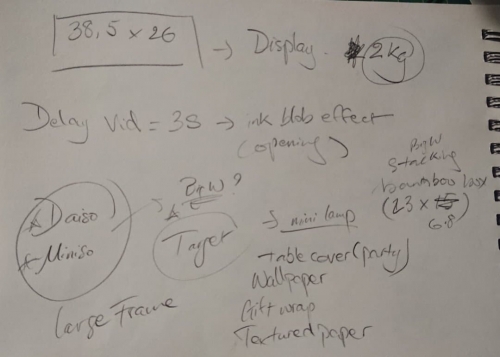 38,5 x 26 → Display. 2kg
Delay vid = 3S → ink blob effect
(opening)
BigW
stacking
bamboo box
(23 x 15)
6.8
* Daiso
* Miniso
BigW?
*
Target
→ mini lamp
table cover (party)
Wallpaper
Gift wrap
Textured paper
Large Frame